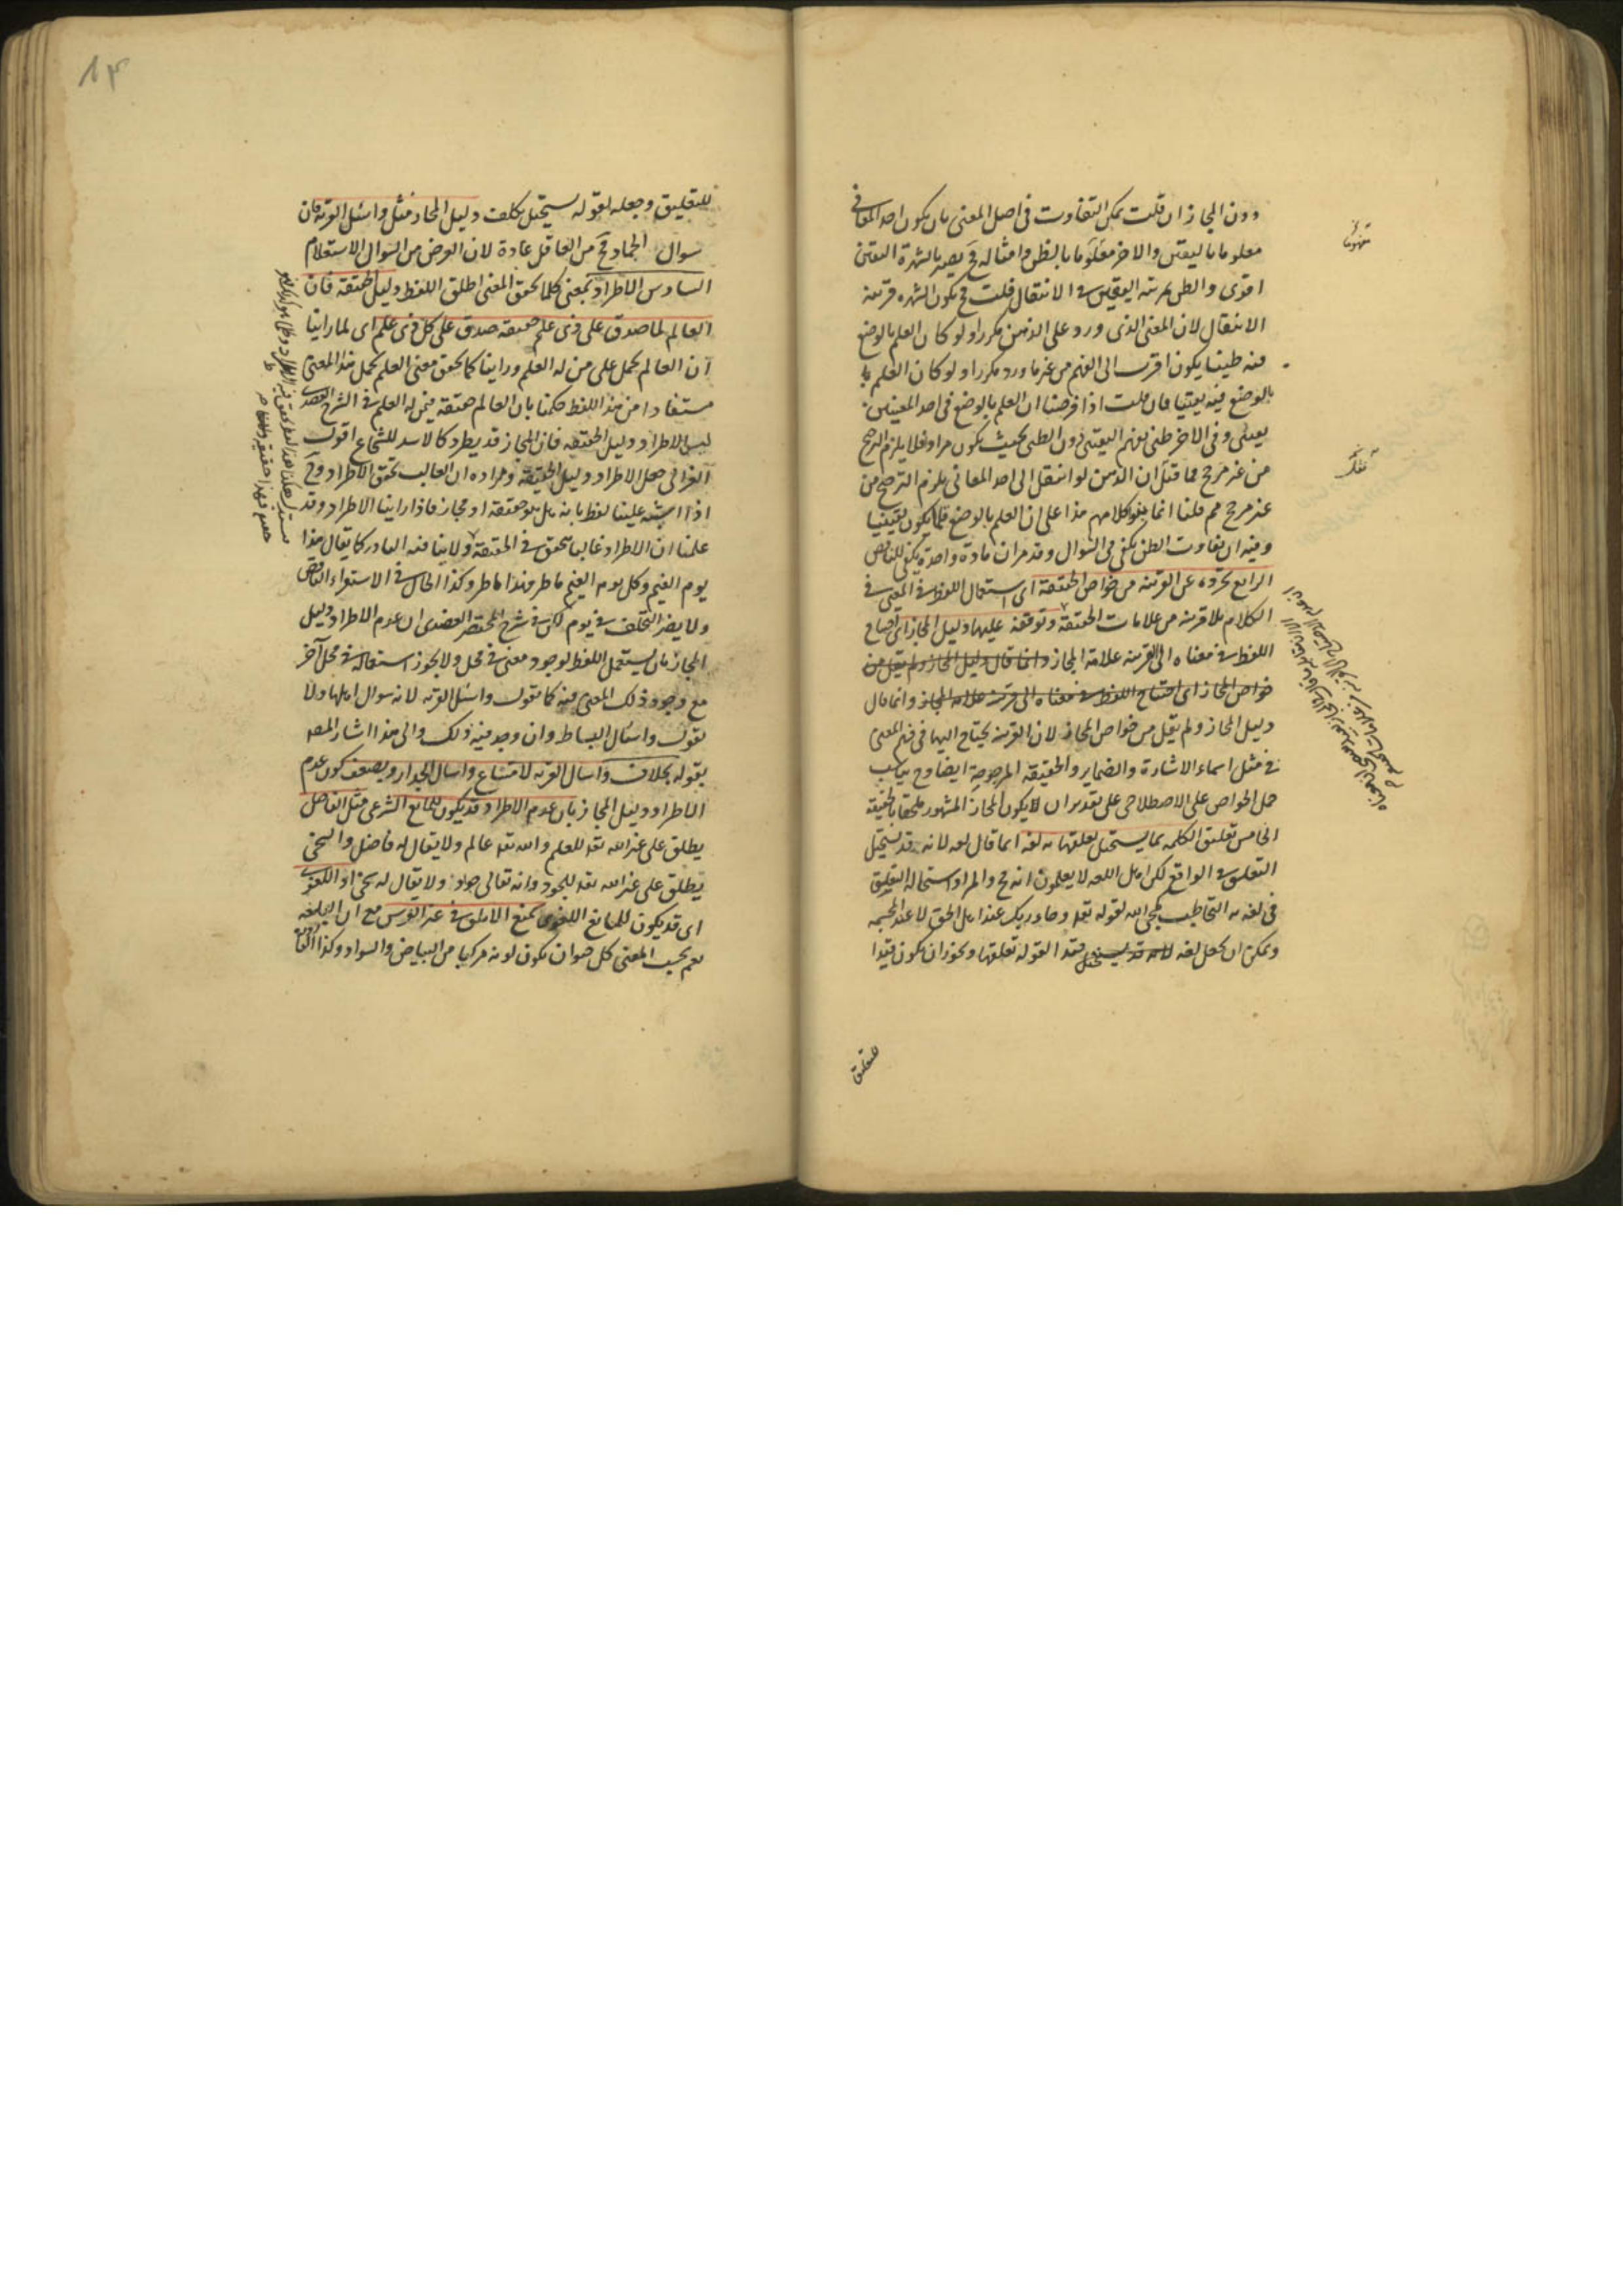 دون المجاز ان قلت يمكن التفاوت فى اصل المعنى بان يكون احد المعانى
معلوما باليقين والاخر معلوما بالظن وامثاله فح يصير بالشهرة اليقين
اقوى والظن بمرتبة اليقين فى الانتقال قلت فح يكون الشهره قرينة
الانتقال لان المعنى الذى ورد على الذهن مكررا ولو كان العلم بالوضع
فيه ظنيا يكون اقرب الى الفهم من غير ما ورد مكررا ولو كان العلم با
بالوضع فيه يقينيا فان قلت اذا فرضنا ان العلم بالوضع فى احد المعنيين
يقينى وفى الاخر ظنى يفهم اليقينى دون الظنى بحيث يكون مرادفا فلا يلزم الترجيح
من غير مرجح فما قيل ان الذهن لو انتقل الى احد المعانى يلزم الترجيح من
غير مرجح مم قلنا انما بنو كلامهم هذا على ان العلم بالوضع قلما يكون يقينيا
وفيه ان تفاوت الظن يكفى فى السوال وقد مر ان مادة واحدة يكفى للناقض
الرابع تجرده عن القرينة من خواص الحقيقة اى استعمال اللفظ فى المعنى فى
الكلام بلا قرينة من علامات الحقيقة وتوقفه عليها دليل المجاز اى احتياج
اللفظ فى معناه الى القرينة علامة المجاز وانما قال دليل المجاز ولم يقل من
خواص المجاز اى احتياج اللفظ فى معناه الى قرينة علامه المجاز وانما قال
دليل المجاز ولم يقل من خواص المجاز لان القرينة يحتاج اليها فى فهم المعنى
فى مثل اسماء الاشارة والضماير والحقيقة المرجوحة ايضا وح يناسب
حمل الخواص على الاصطلاحى على تقدير ان لا يكون المجاز المشهور ملحقا بالحقيقة
الخامس تعليق الكلمه بما يستحيل تعلقها به لغه انما قال لغه لانه قد يستحيل
التعليق فى الواقع لكن اهل اللغه لا يعلمون انه مح والمراد استحالة التعليق
فى لغة به التخاطب كمجئ الله لقوله تعه وجاء ربك عند اهل الحق لا عند المجسمه
ويمكن ان يجعل لغه لانه قد يستحيل قيدا لقوله تعلقها ويجوز ان يكون قيدا
للتعليق
للتعليق وجعله لقوله يستحيل تكلف دليل المجاز مثل واسئل القرية فان
سوال الجماد مح من العاقل عادة لان الغرض من السوال الاستعلام
السادس الاطراد بمعنى كلما تحقق المعنى اطلق اللفظ دليل الحقيقة فان
العالم لما صدق على ذى علم حقيقة صدق على كل ذى علم اى لما راينا
ان العالم يحمل على من له العلم وراينا كلما تحقق معنى العلم يحمل هذا المعنى
مستفادا من هذا اللفظ حكمنا بان العالم حقيقة فيمن له العلم فى الشرح العضدى
ليس الاطراد دليل الحقيقه فان المجاز قد يطرد كالاسد للشجاع اقول
الغزالى جعل الاطراد دليل الحقيقة ومراده ان الغالب تحقق الاطراد وفح
اذا اشتبه علينا لفظ بانه هل هو حقيقة او مجاز فاذا راينا الاطراد وقد
علمنا ان الاطراد غالبا تحقق فى الحقيقة ولا ينافيه النادر كما يقال هذا
يوم الغيم وكل يوم الغيم ماطر فهذا ماطر وكذا الحال فى الاستقراء الناقص
ولا يضر التخلف فى يوم لكن فى شرح المختصر العضدى ان عدم الاطراد دليل
المجاز بان يستعمل اللفظ لوجود معنى فى محل ولا يجوز استعماله فى محل آخر
مع وجود ذلك المعنى فيه كما تقول واسئل القرية لانه سوال اهلها ولا
تقول واسئال البساط وان وجد فيه ذلك والى هذا اشار المصه
بقوله بخلاف واسال القريه لامتناع واسال الجدار ويضعف كون عدم
الاطراد دليل المجاز بان عدم الاطراد قد يكون للمانع الشرعى مثل الفاضل
يطلق على غير الله تعه للعلم والله تعه عالم ولا يقال له فاضل والسخى
يطلق على غير الله تعه للجود وانه تعالى جواد ولا يقال له سخى او اللغوى
اى قد يكون للمانع اللغوى كمنع الابلق فى غير الفرس مع ان البلقه
يعم بحسب المعنى كل حيوان يكون لونه مركبا من البياض والسواد وكذا